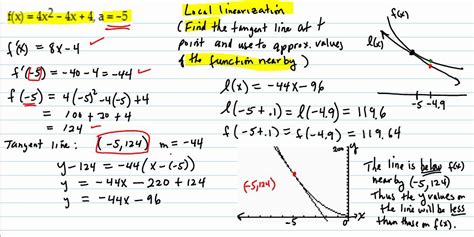 f(x) = 4x² - 4x + 4, a = -5
f'(x) = 8x - 4 ✓
f'(-5) = -40 - 4 = -44 ✓
f(-5) = 4(-5)² - 4(-5) + 4
= 100 + 20 + 4
= 124 ✓
Tangent line: (-5, 124) m = -44
y - 124 = -44(x - (-5))
y = -44x - 220 + 124
y = -44x - 96
Local linearization
(Find the tangent line at t
point and use to approx. values
of the function nearby)
l(x) = -44x - 96
l(-5+.1) = l(-4.9) = 119.6
f(-5+.1) = f(-4.9) = 119.64
f(x)
l(x)
-5 -4.9
200
y
(-5,124)
-5
x
The line is below f(x)
nearby (-5, 124)
Thus the y values on
the line will be less
than those on f(x).